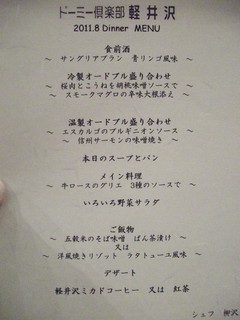 ドーミー倶楽部 軽井沢
2011.8 Dinner MENU
食前酒
～ サングリアブラン 青リンゴ風味 ～
冷製オードブル盛り合わせ
～ 桜肉とこうねを胡桃味噌ソースで ～
～ スモークマグロの辛味大根添え ～
温製オードブル盛り合わせ
～ エスカルゴのブルギニオンソース ～
～ 信州サーモンの味噌焼き ～
本日のスープとパン
メイン料理
～ 牛ロースのグリエ 3種のソースで ～
いろいろ野菜サラダ
ご飯物
～ 五穀米のそば味噌 ばん茶漬け ～
又は
～ 洋風焼きリゾット ラタトゥーユ風味 ～
デザート
軽井沢ミカドコーヒー 又は 紅茶
シェフ 柳沢